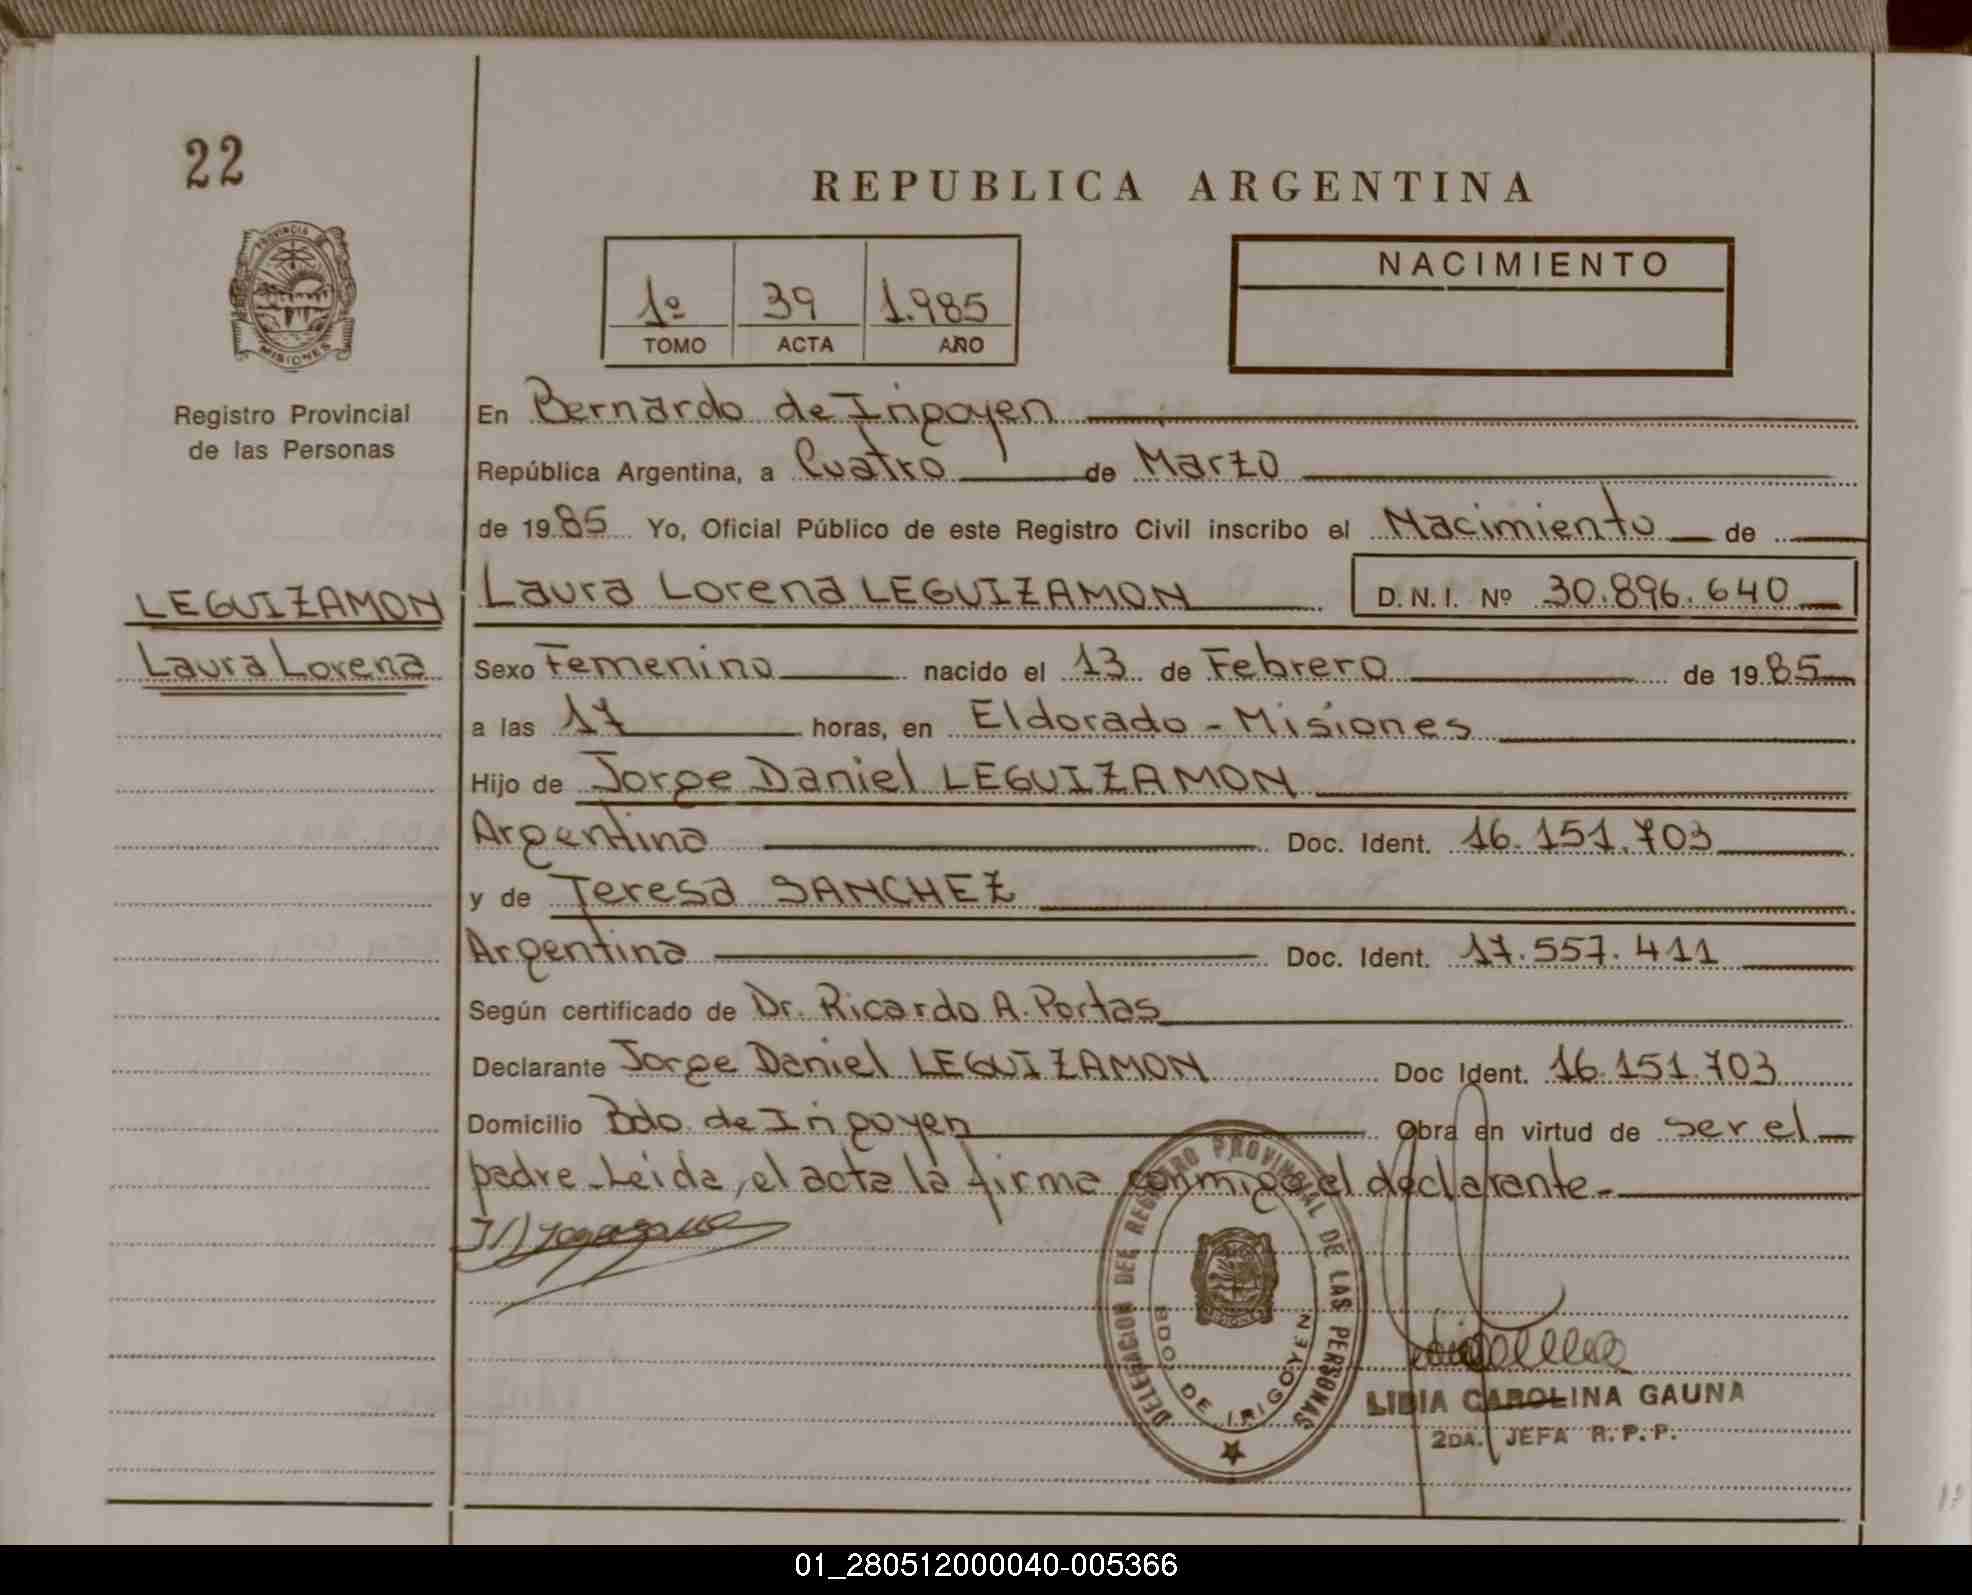 22
REPUBLICA ARGENTINA
PROVINCIA DE
MISIONES
Registro Provincial
de las Personas
1º 39 1.985
TOMO ACTA AÑO
NACIMIENTO
En Bernardo de Irigoyen
República Argentina, a Cuatro de Marzo
de 1985 Yo, Oficial Público de este Registro Civil inscribo el Nacimiento de
LEGUIZAMON
Laura Lorena
Laura Lorena LEGUIZAMON D.N.I. Nº 30.896.640
Sexo Femenino nacido el 13 de Febrero de 1985
a las 17 horas, en Eldorado - Misiones
Hijo de Jorge Daniel LEGUIZAMON
Argentina Doc. Ident. 16.151.703
y de Teresa SANCHEZ
Argentina Doc. Ident. 17.557.411
Según certificado de Dr. Ricardo A. Portas
Declarante Jorge Daniel LEGUIZAMON Doc Ident. 16.151.703
Domicilio Bdo. de Irigoyen Obra en virtud de ser el
padre - Leida, el acta la firma conmigo el declarante.-
DELEGACION DEL REGISTRO PROVINCIAL DE LAS PERSONAS
BDO. DE IRIGOYEN
MISIONES
LIDIA CAROLINA GAUNA
2DA. JEFA R.P.P.
01_280512000040-005366